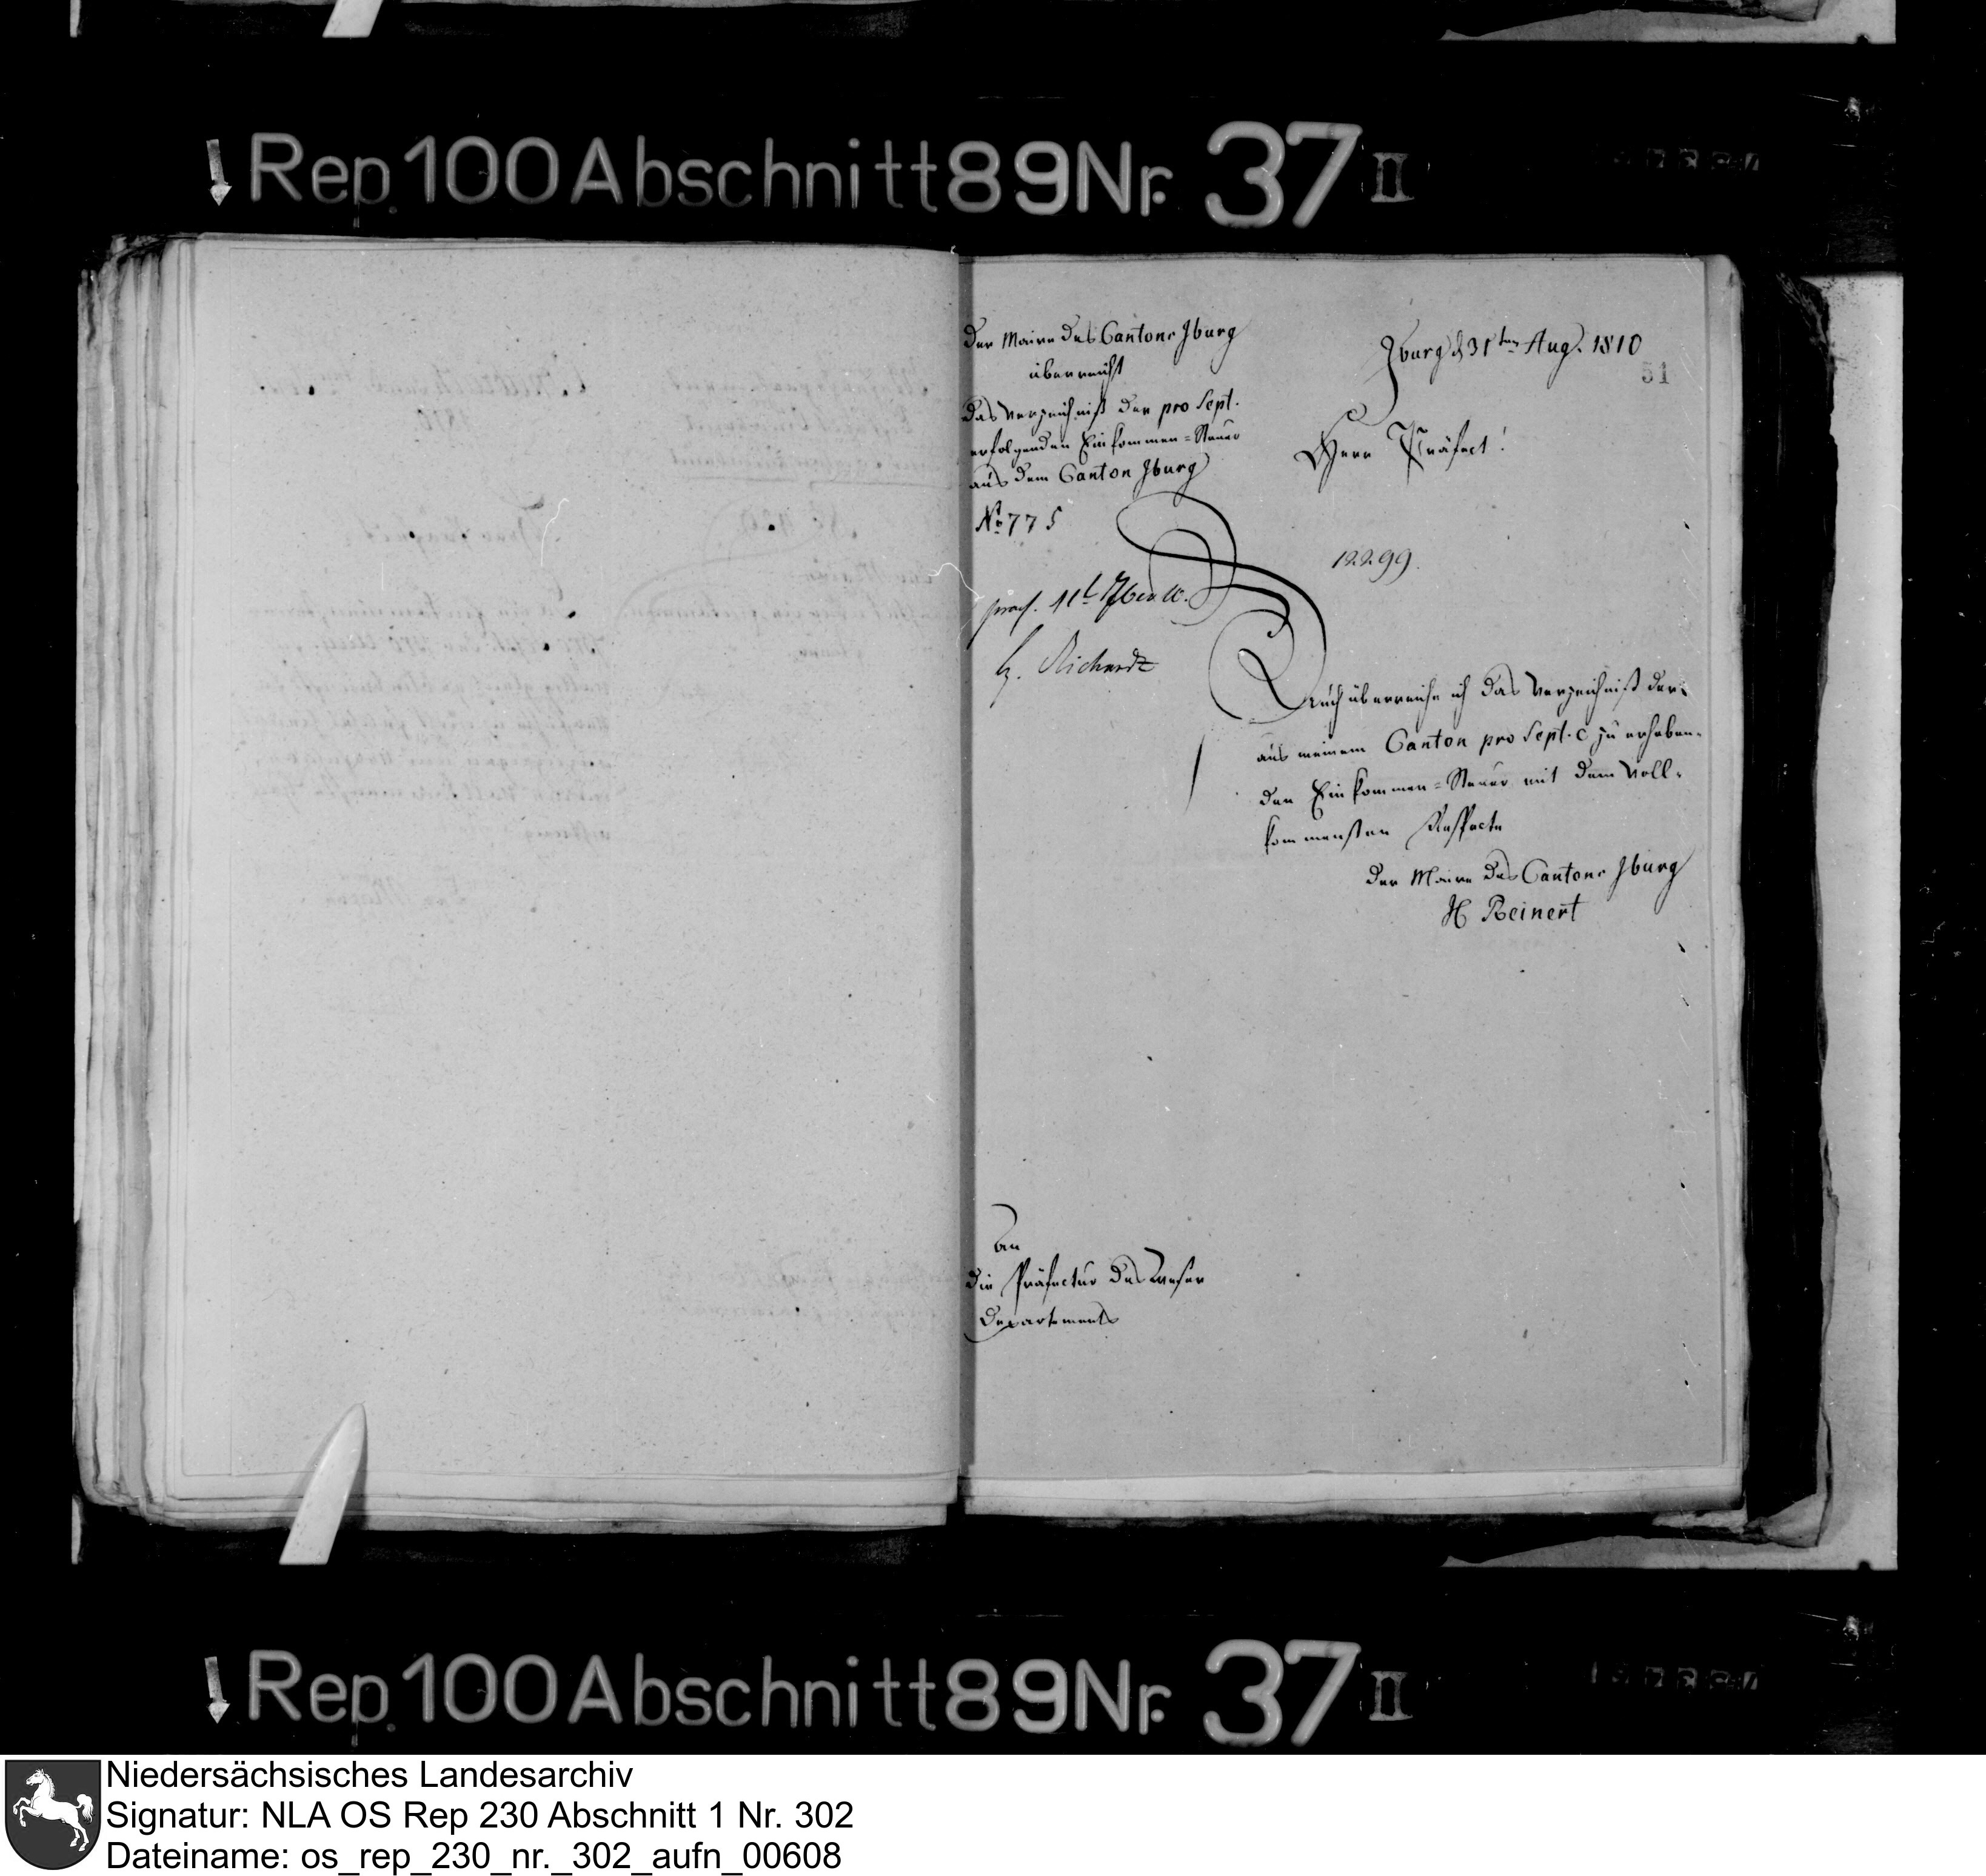 Rep. 100 Abschnitt 89 Nr. 37 II
Der Maire des Cantons Jburg
überreicht
das Verzeichniß der pro Sept.
erfolgenden Einkommen=Steuer
aus dem Canton Jburg
No 775
Jburg d 31ten Aug. 1810
51
Herr Präfect!
12299.
G. Richardz
Auch überreiche ich das Verzeichniß der
aus meinem Canton pro Sept. c zu erheben-
den Einkommen=Steuer mit dem voll-
kommensten Respecte
Der Maire des Cantons Jburg
H Reinert
An
die Präfectur des Weser
Departements
Rep. 100 Abschnitt 89 Nr. 37 II
Niedersächsisches Landesarchiv
Signatur: NLA OS Rep 230 Abschnitt 1 Nr. 302
Dateiname: os_rep_230_nr._302_aufn_00608